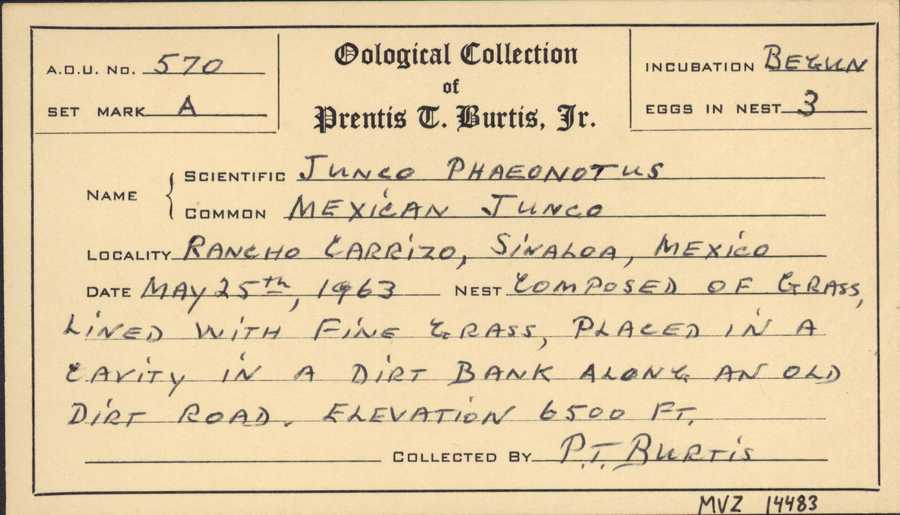 A.O.U. No. 570
SET MARK A
Oological Collection
of
Prentis T. Burtis, Jr.
INCUBATION BEGUN
EGGS IN NEST 3
NAME
SCIENTIFIC JUNCO PHAEONOTUS
COMMON MEXICAN JUNCO
LOCALITY RANCHO CARRIZO, SINALOA, MEXICO
DATE MAY 25th, 1963 NEST COMPOSED OF GRASS,
LINED WITH FINE GRASS, PLACED IN A
CAVITY IN A DIRT BANK ALONG AN OLD
DIRT ROAD. ELEVATION 6500 FT.
COLLECTED BY P.T. BURTIS
MVZ 14483